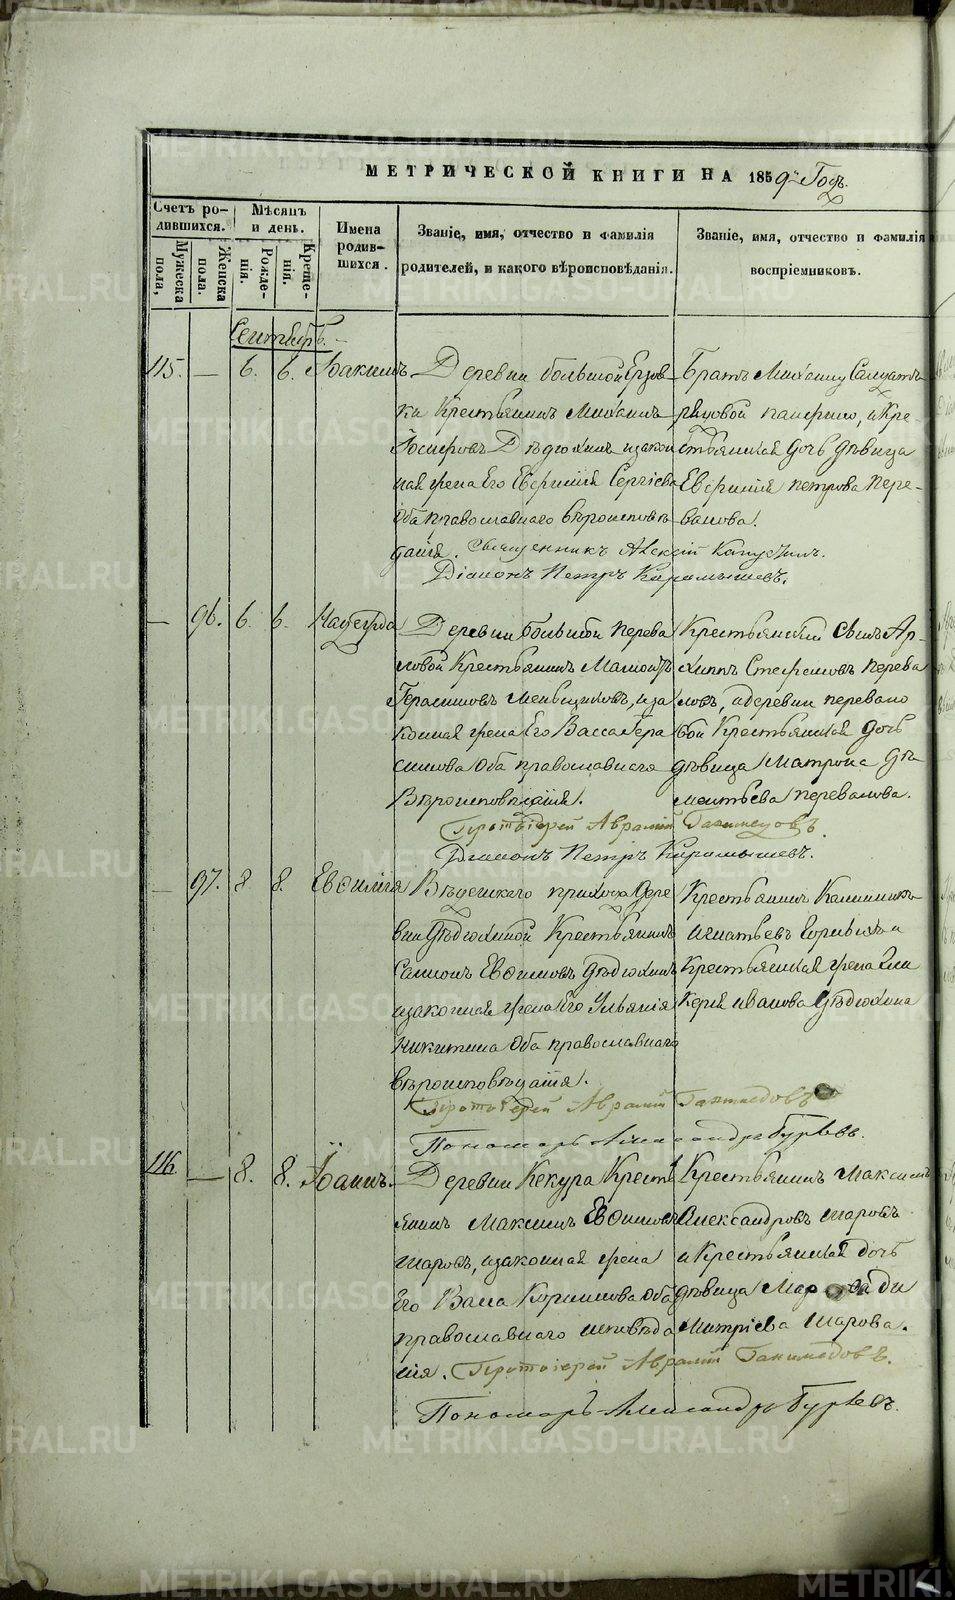 МЕТРИЧЕСКОЙ КНИГИ НА 1859й Годъ.
Счетъ ро-
дившихся.
Мужеска
пола,
Женска
пола.
Мѣсяцъ
и день.
Рожде-
нія.
Креще-
нія.
Имена
родив-
шихся.
Званіе, имя, отчество и фамилія
родителей, и какого вѣроисповѣданія.
Званіе, имя, отчество и фамилія
воспріемниковъ.
Сентябрь.
115. — 6. 6. Іоакимъ.
Деревни большой Ерзов-
ки Крестьянинъ Михаилъ
Іосифовъ Дѣдюхинъ изакон
ная жена Его Евфимія Сергіева
Оба православнаго вѣроисповѣ
данія. Священникъ Алексій
Діаконъ Петръ Карамышевъ.
Братъ Михаилу
иКре-
стьянская дочь дѣвица
Евфимія петрова пере-
валова.
— 96. 6. 6. Надежда
Деревни большой перева
ловой Крестьянинъ
Герасимовъ Меньщиковъ, иза
конная жена Его Васса Гера
симова Оба православнаго
Вѣроисповѣданія.
Протоіерей Аврамій Ганимедовъ.
Діаконъ Петръ Карамышевъ.
Крестьянский сынъ Ар-
хиппъ Стефановъ перева
ловъ, идеревни перевало
вой Крестьянская дочь
дѣвица Матрона
перевалова.
— 97. 8. 8. Евѳимія
прихода Дере
вни Дѣдюхиной Крестьянинъ
Самсонъ Евѳимовъ Дѣдюхинъ
изаконная жена Его Ульянія
Никитина Оба православнаго
вѣроисповѣданія.
Протоіерей Аврамій Ганимедовъ
Пономарь Александръ Бурьевъ.
Крестьянинъ Калинникъ
Игнатьевъ
Крестьянская жена Гли
керія иванова Дѣдюхина
116. — 8. 8. Іоаннъ.
Деревни Кекура Кресть
янинъ Максимъ Евѳимовъ
шаровъ, изаконная жена
Его Васса Корнилова Оба
православнаго исповѣда
нія. Протоіерей Аврамій Ганимедовъ.
Пономарь Александръ Бурьевъ.
Крестьянинъ Максимъ
Александровъ шаровъ
и Крестьянская дочь
дѣвица Ди
митріева Шарова.
METRIKI.GASO-URAL.RU